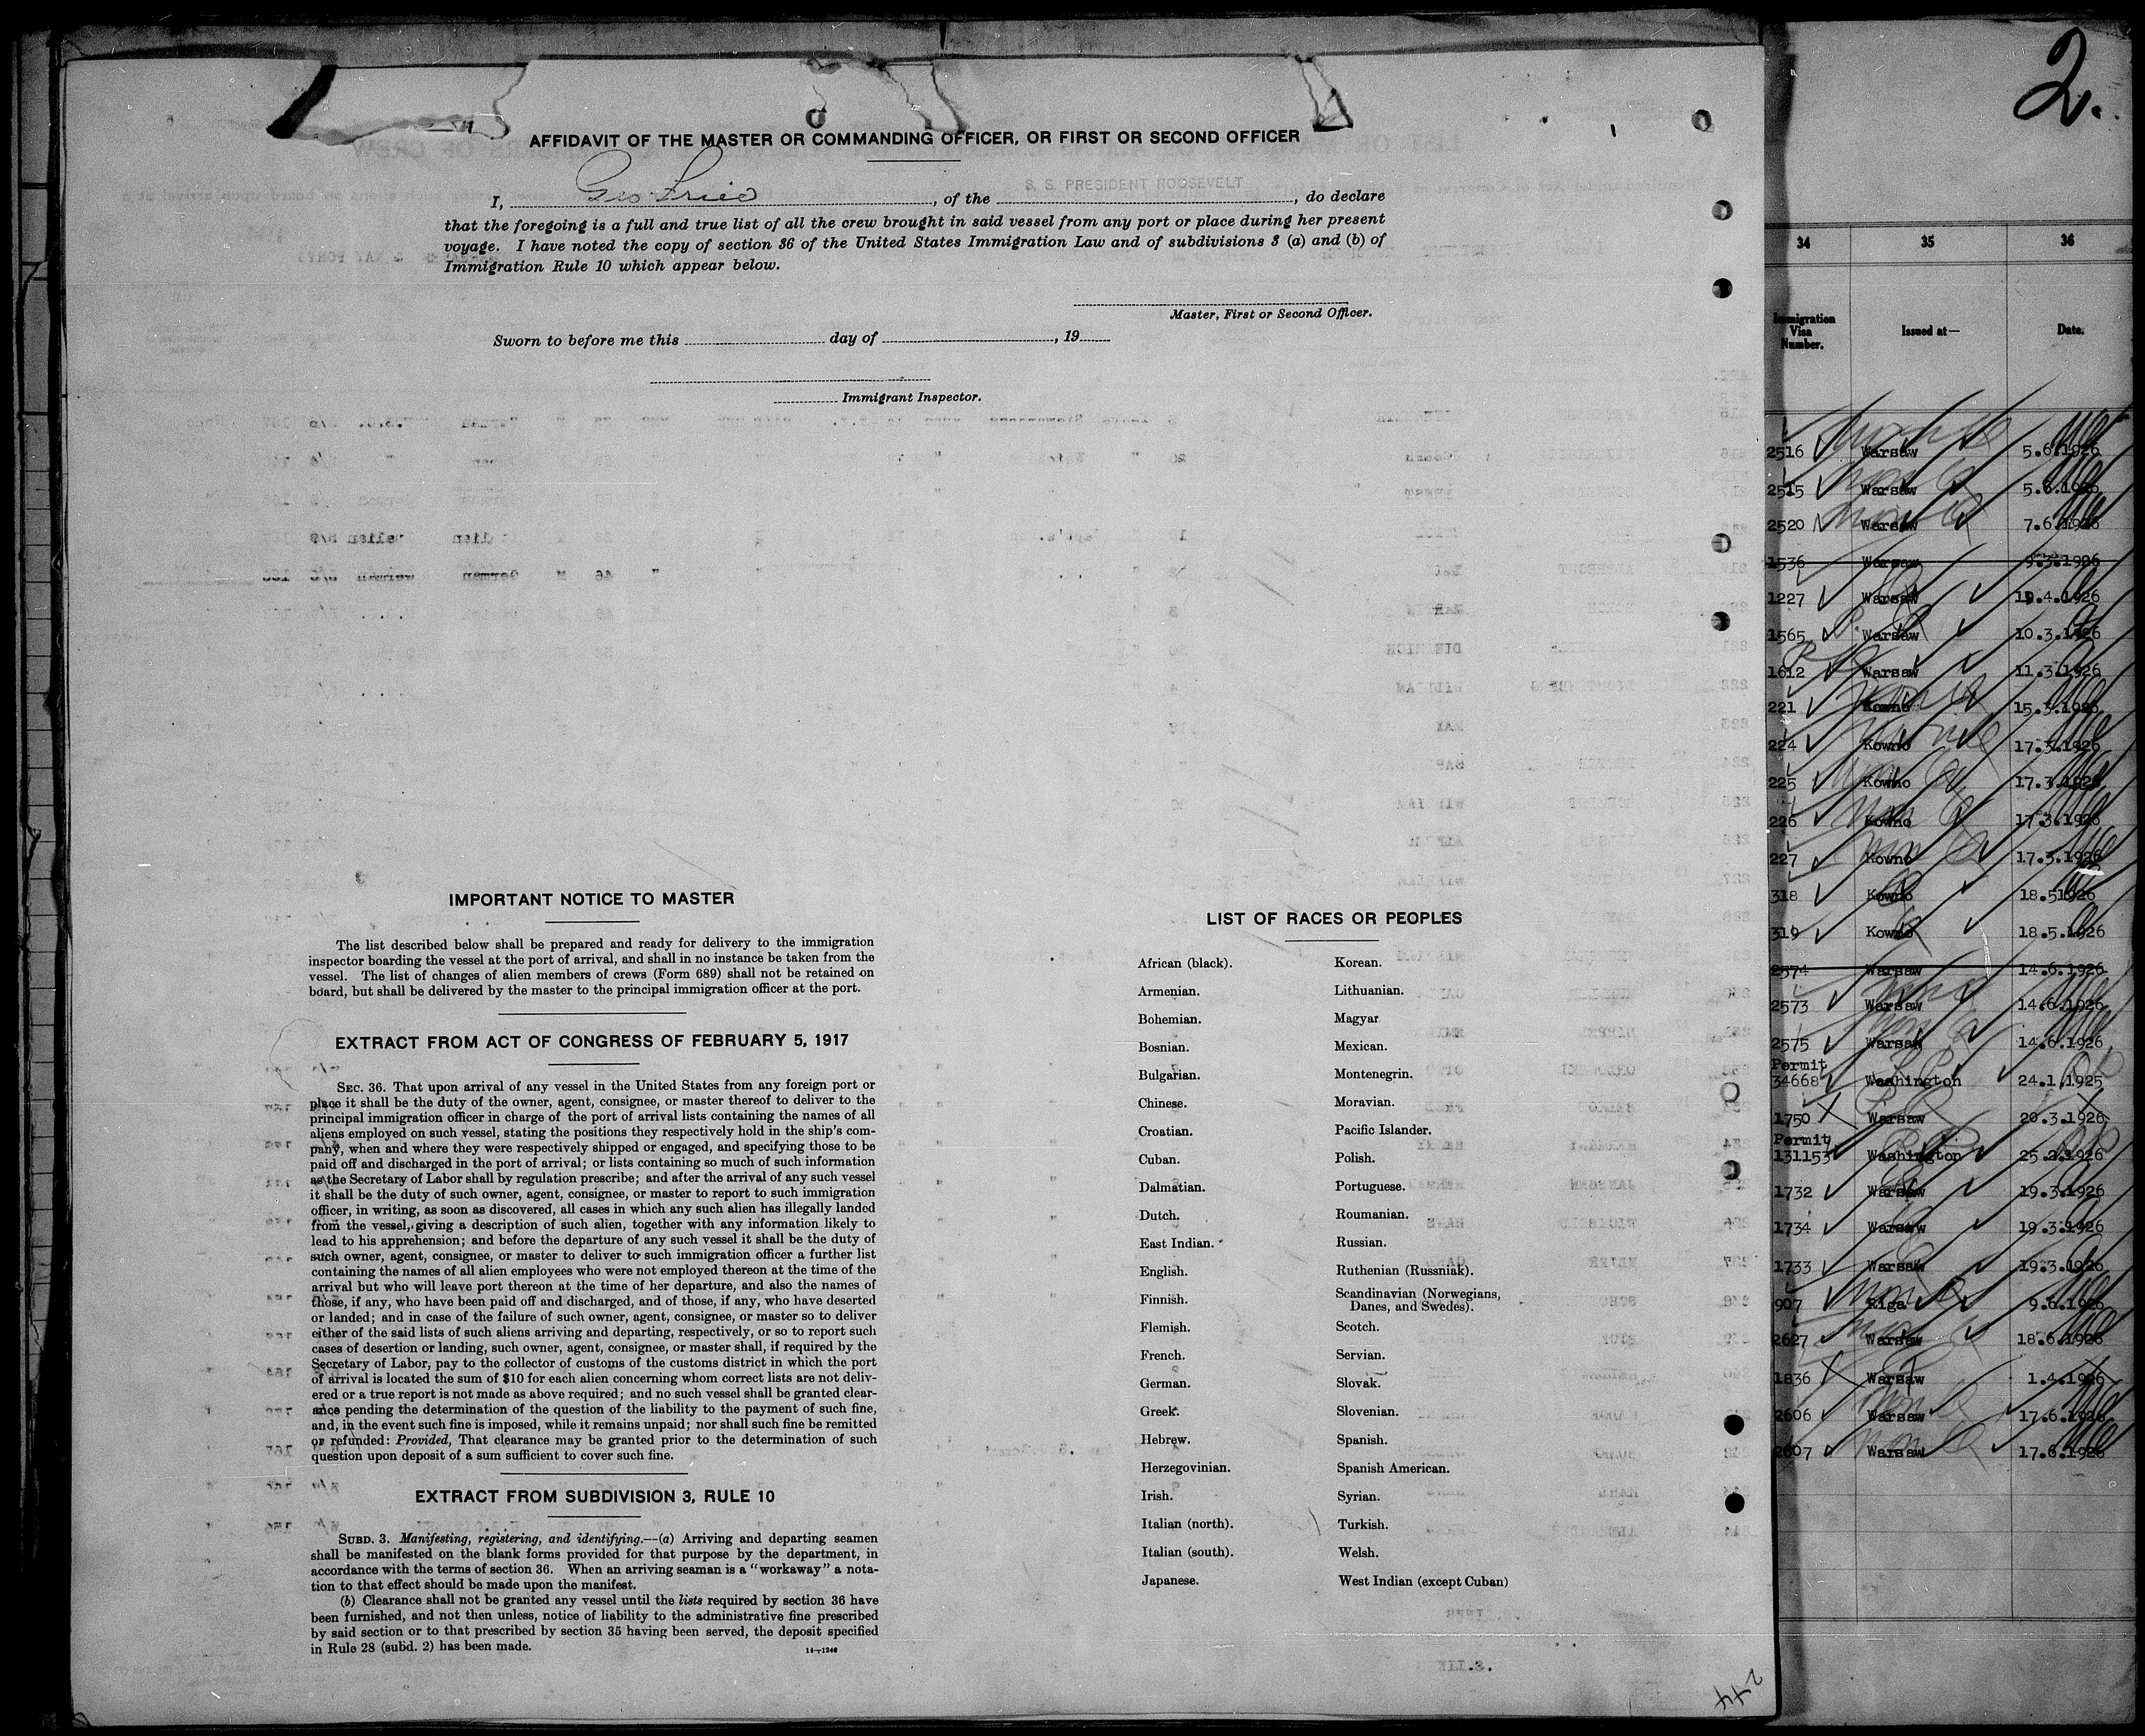 2.
AFFIDAVIT OF THE MASTER OR COMMANDING OFFICER, OR FIRST OR SECOND OFFICER
I, Geo Fried, of the S. S. PRESIDENT ROOSEVELT, do declare
that the foregoing is a full and true list of all the crew brought in said vessel from any port or place during her present
voyage. I have noted the copy of section 36 of the United States Immigration Law and of subdivisions 3 (a) and (b) of
Immigration Rule 10 which appear below.
Master, First or Second Officer.
Sworn to before me this day of , 19
Immigrant Inspector.
IMPORTANT NOTICE TO MASTER
The list described below shall be prepared and ready for delivery to the immigration
inspector boarding the vessel at the port of arrival, and shall in no instance be taken from the
vessel. The list of changes of alien members of crews (Form 689) shall not be retained on
board, but shall be delivered by the master to the principal immigration officer at the port.
EXTRACT FROM ACT OF CONGRESS OF FEBRUARY 5, 1917
SEC. 36. That upon arrival of any vessel in the United States from any foreign port or
place it shall be the duty of the owner, agent, consignee, or master thereof to deliver to the
principal immigration officer in charge of the port of arrival lists containing the names of all
aliens employed on such vessel, stating the positions they respectively hold in the ship's com-
pany, when and where they were respectively shipped or engaged, and specifying those to be
paid off and discharged in the port of arrival; or lists containing so much of such information
as the Secretary of Labor shall by regulation prescribe; and after the arrival of any such vessel
it shall be the duty of such owner, agent, consignee, or master to report to such immigration
officer, in writing, as soon as discovered, all cases in which any such alien has illegally landed
from the vessel, giving a description of such alien, together with any information likely to
lead to his apprehension; and before the departure of any such vessel it shall be the duty of
such owner, agent, consignee, or master to deliver to such immigration officer a further list
containing the names of all alien employees who were not employed thereon at the time of the
arrival but who will leave port thereon at the time of her departure, and also the names of
those, if any, who have been paid off and discharged, and of those, if any, who have deserted
or landed; and in case of the failure of such owner, agent, consignee, or master so to deliver
either of the said lists of such aliens arriving and departing, respectively, or so to report such
cases of desertion or landing, such owner, agent, consignee, or master shall, if required by the
Secretary of Labor, pay to the collector of customs of the customs district in which the port
of arrival is located the sum of $10 for each alien concerning whom correct lists are not deliv-
ered or a true report is not made as above required; and no such vessel shall be granted clear-
ance pending the determination of the question of the liability to the payment of such fine,
and, in the event such fine is imposed, while it remains unpaid; nor shall such fine be remitted
or refunded: Provided, That clearance may be granted prior to the determination of such
question upon deposit of a sum sufficient to cover such fine.
EXTRACT FROM SUBDIVISION 3, RULE 10
SUBD. 3. Manifesting, registering, and identifying.—(a) Arriving and departing seamen
shall be manifested on the blank forms provided for that purpose by the department, in
accordance with the terms of section 36. When an arriving seaman is a "workaway" a nota-
tion to that effect should be made upon the manifest.
(b) Clearance shall not be granted any vessel until the lists required by section 36 have
been furnished, and not then unless, notice of liability to the administrative fine prescribed
by said section or to that prescribed by section 35 having been served, the deposit specified
in Rule 28 (subd. 2) has been made.
14—1240
LIST OF RACES OR PEOPLES
African (black).
Armenian.
Bohemian.
Bosnian.
Bulgarian.
Chinese.
Croatian.
Cuban.
Dalmatian.
Dutch.
East Indian.
English.
Finnish.
Flemish.
French.
German.
Greek.
Hebrew.
Herzegovinian.
Irish.
Italian (north).
Italian (south).
Japanese.
Korean.
Lithuanian.
Magyar
Mexican.
Montenegrin.
Moravian.
Pacific Islander.
Polish.
Portuguese.
Roumanian.
Russian.
Ruthenian (Russniak).
Scandinavian (Norwegians,
Danes, and Swedes).
Scotch.
Servian.
Slovak.
Slovenian.
Spanish.
Spanish American.
Syrian.
Turkish.
Welsh.
West Indian (except Cuban)
244
34 35 36
Immigration Visa Number. Issued at— Date.
2516 Warsaw 5.6.1926
2515 Warsaw 5.6.1926
2520 Warsaw 7.6.1926
1536 Warsaw 9.3.1926
1227 Warsaw 19.4.1926
1565 Warsaw 10.3.1926
1612 Warsaw 11.3.1926
221 Kowno 15.3.1926
224 Kowno 17.3.1926
225 Kowno 17.3.1926
226 Kowno 17.3.1926
227 Kowno 17.3.1926
318 Kowno 18.51926
319 Kowno 18.5.1926
2574 Warsaw 14.6.1926
2573 Warsaw 14.6.1926
2575 Warsaw 14.6.1926
Permit
34668 Washington 24.1.1925
1750 Warsaw 20.3.1926
Permit
131153 Washington 25.2.1926
1732 Warsaw 19.3.1926
1734 Warsaw 19.3.1926
1733 Warsaw 19.3.1926
907 Riga 9.6.1926
2627 Warsaw 18.6.1926
1836 Warsaw 1.4.1926
2606 Warsaw 17.6.1926
2607 Warsaw 17.6.1926